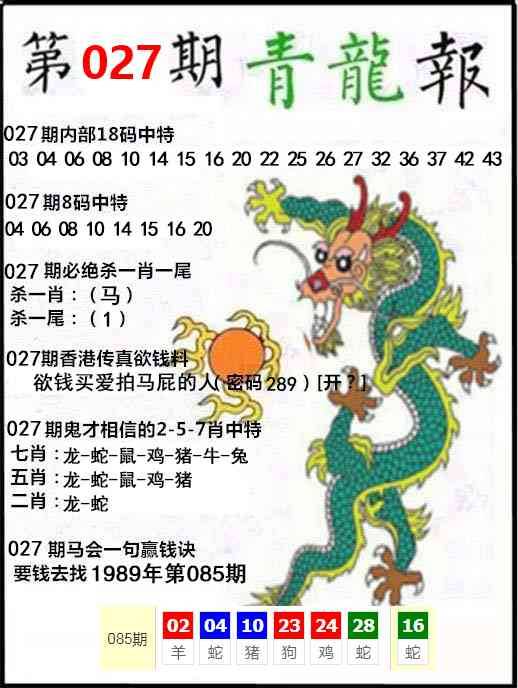 第027期 青龍報
027期内部18码中特
03 04 06 08 10 14 15 16 20 22 25 26 27 32 36 37 42 43
027期8码中特
04 06 08 10 14 15 16 20
027 期必绝杀一肖一尾
杀一肖:(马)
杀一尾:(1)
027期香港传真欲钱料
欲钱买爱拍马屁的人(密码289)[开?]
027期鬼才相信的2-5-7肖中特
七肖:龙-蛇-鼠-鸡-猪-牛-兔
五肖:龙-蛇-鼠-鸡-猪
二肖:龙-蛇
027 期马会一句赢钱诀
要钱去找1989年第085期
085期 02 04 10 23 24 28 16
羊 蛇 猪 狗 鸡 蛇 蛇